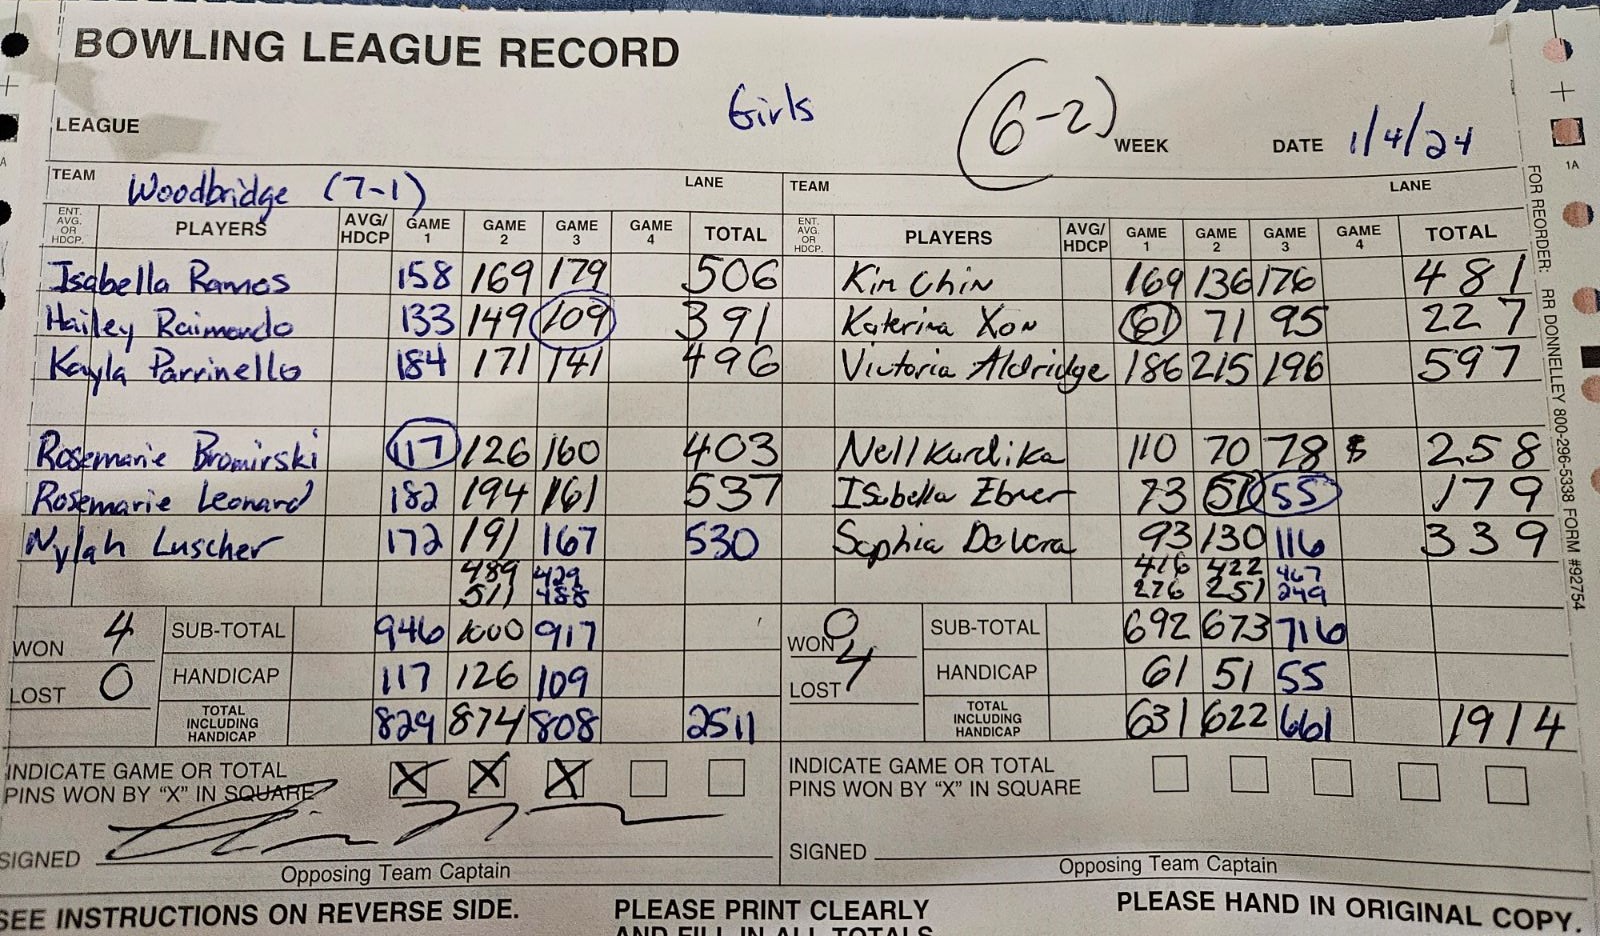 BOWLING LEAGUE RECORD
Girls
(6-2)
LEAGUE
WEEK
DATE 1/4/24
TEAM Woodbridge (7-1) LANE
TEAM LANE
ENT. AVG. OR HDCP. PLAYERS AVG/HDCP GAME 1 GAME 2 GAME 3 GAME 4 TOTAL
Isabella Ramos 158 169 179 506
Hailey Raimondo 133 149 109 391
Kayla Parrinello 184 171 141 496
Rosemarie Bromirski 117 126 160 403
Rosemarie Leonard 182 194 161 537
Nylah Luscher 172 191 167 530
489 429
511 488
WON 4 SUB-TOTAL 946 1000 917
LOST 0 HANDICAP 117 126 109
TOTAL INCLUDING HANDICAP 829 874 808 2511
INDICATE GAME OR TOTAL
PINS WON BY "X" IN SQUARE X X X
SIGNED
Opposing Team Captain
ENT. AVG. OR HDCP. PLAYERS AVG/HDCP GAME 1 GAME 2 GAME 3 GAME 4 TOTAL
Kim Chin 169 136 176 481
Katerina Xon 61 71 95 227
Victoria Aldridge 186 215 196 597
Nell Kurdika 110 70 78 258
Isabella Ebner 73 51 55 179
Sophia 93 130 116 339
416 422 467
276 251 249
WON 0 SUB-TOTAL 692 673 716
LOST 4 HANDICAP 61 51 55
TOTAL INCLUDING HANDICAP 631 622 661 1914
INDICATE GAME OR TOTAL
PINS WON BY "X" IN SQUARE
SIGNED
Opposing Team Captain
SEE INSTRUCTIONS ON REVERSE SIDE.
PLEASE PRINT CLEARLY
AND FILL IN ALL TOTALS
PLEASE HAND IN ORIGINAL COPY.
FOR REORDER: RR DONNELLEY 800-296-5338 FORM #92754
1A